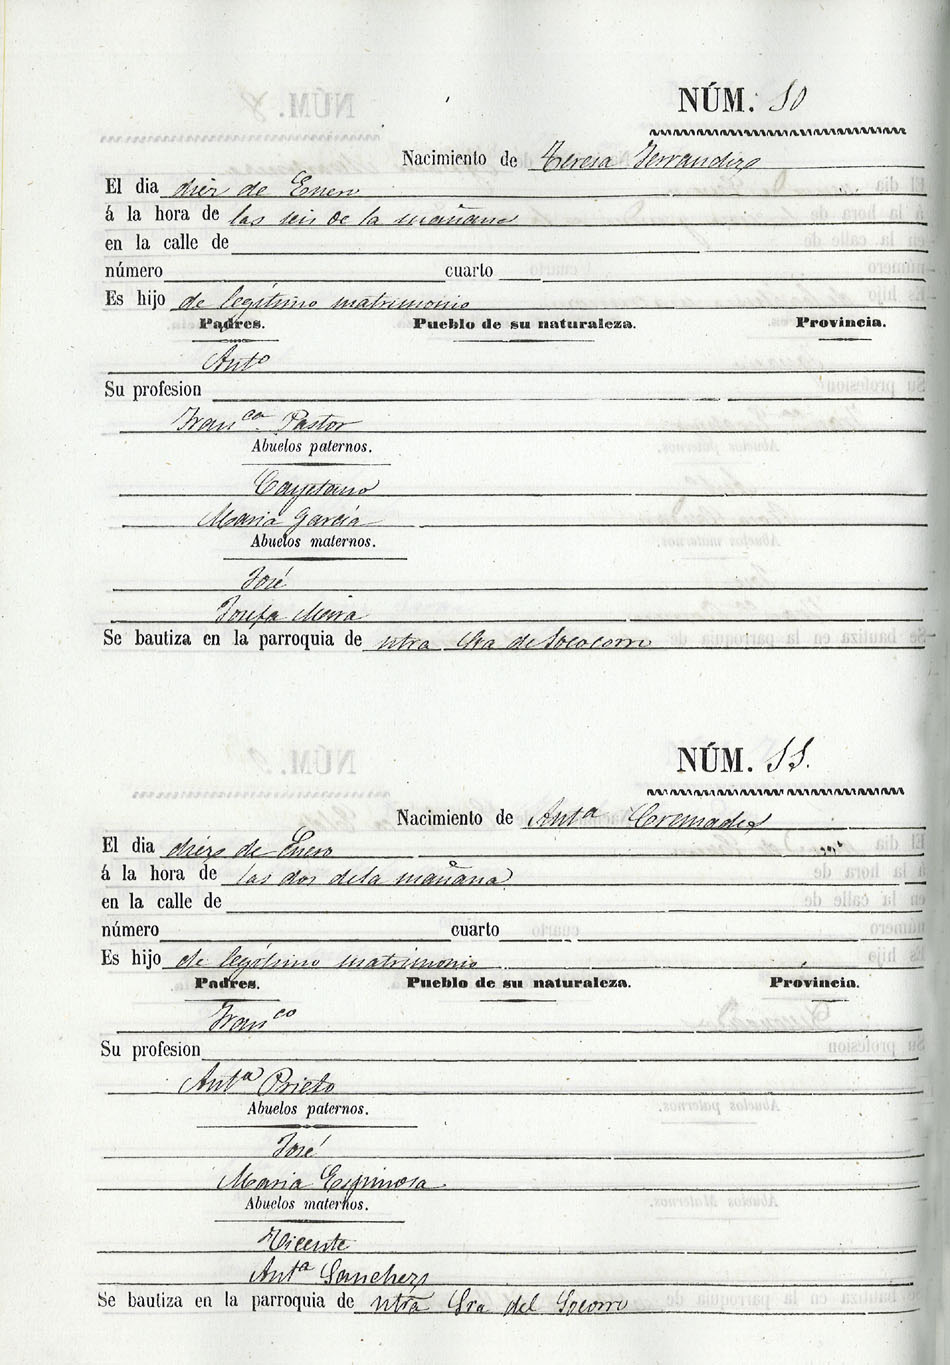 NÚM. 10
Nacimiento de Teresa Ferrandiz
El dia diez de Enero
á la hora de las seis de la mañana
en la calle de
número cuarto
Es hijo de legítimo matrimonio
Padres. Pueblo de su naturaleza. Provincia.
Antº
Su profesion
Franca Pastor
Abuelos paternos.
Cayetano
Maria García
Abuelos maternos.
José
Josefa Mira
Se bautiza en la parroquia de ntra Sra de Sococorro
NÚM. 11.
Nacimiento de Antª Cremades
El dia diez de Enero
á la hora de las dos dela mañana
en la calle de
número cuarto
Es hijo de legítimo matrimonio
Padres. Pueblo de su naturaleza. Provincia.
Franco
Su profesion
Antª Prieto
Abuelos paternos.
José
Maria Espinosa
Abuelos maternos.
Vicente
Antª Sanchez
Se bautiza en la parroquia de ntra Sra del Socorro